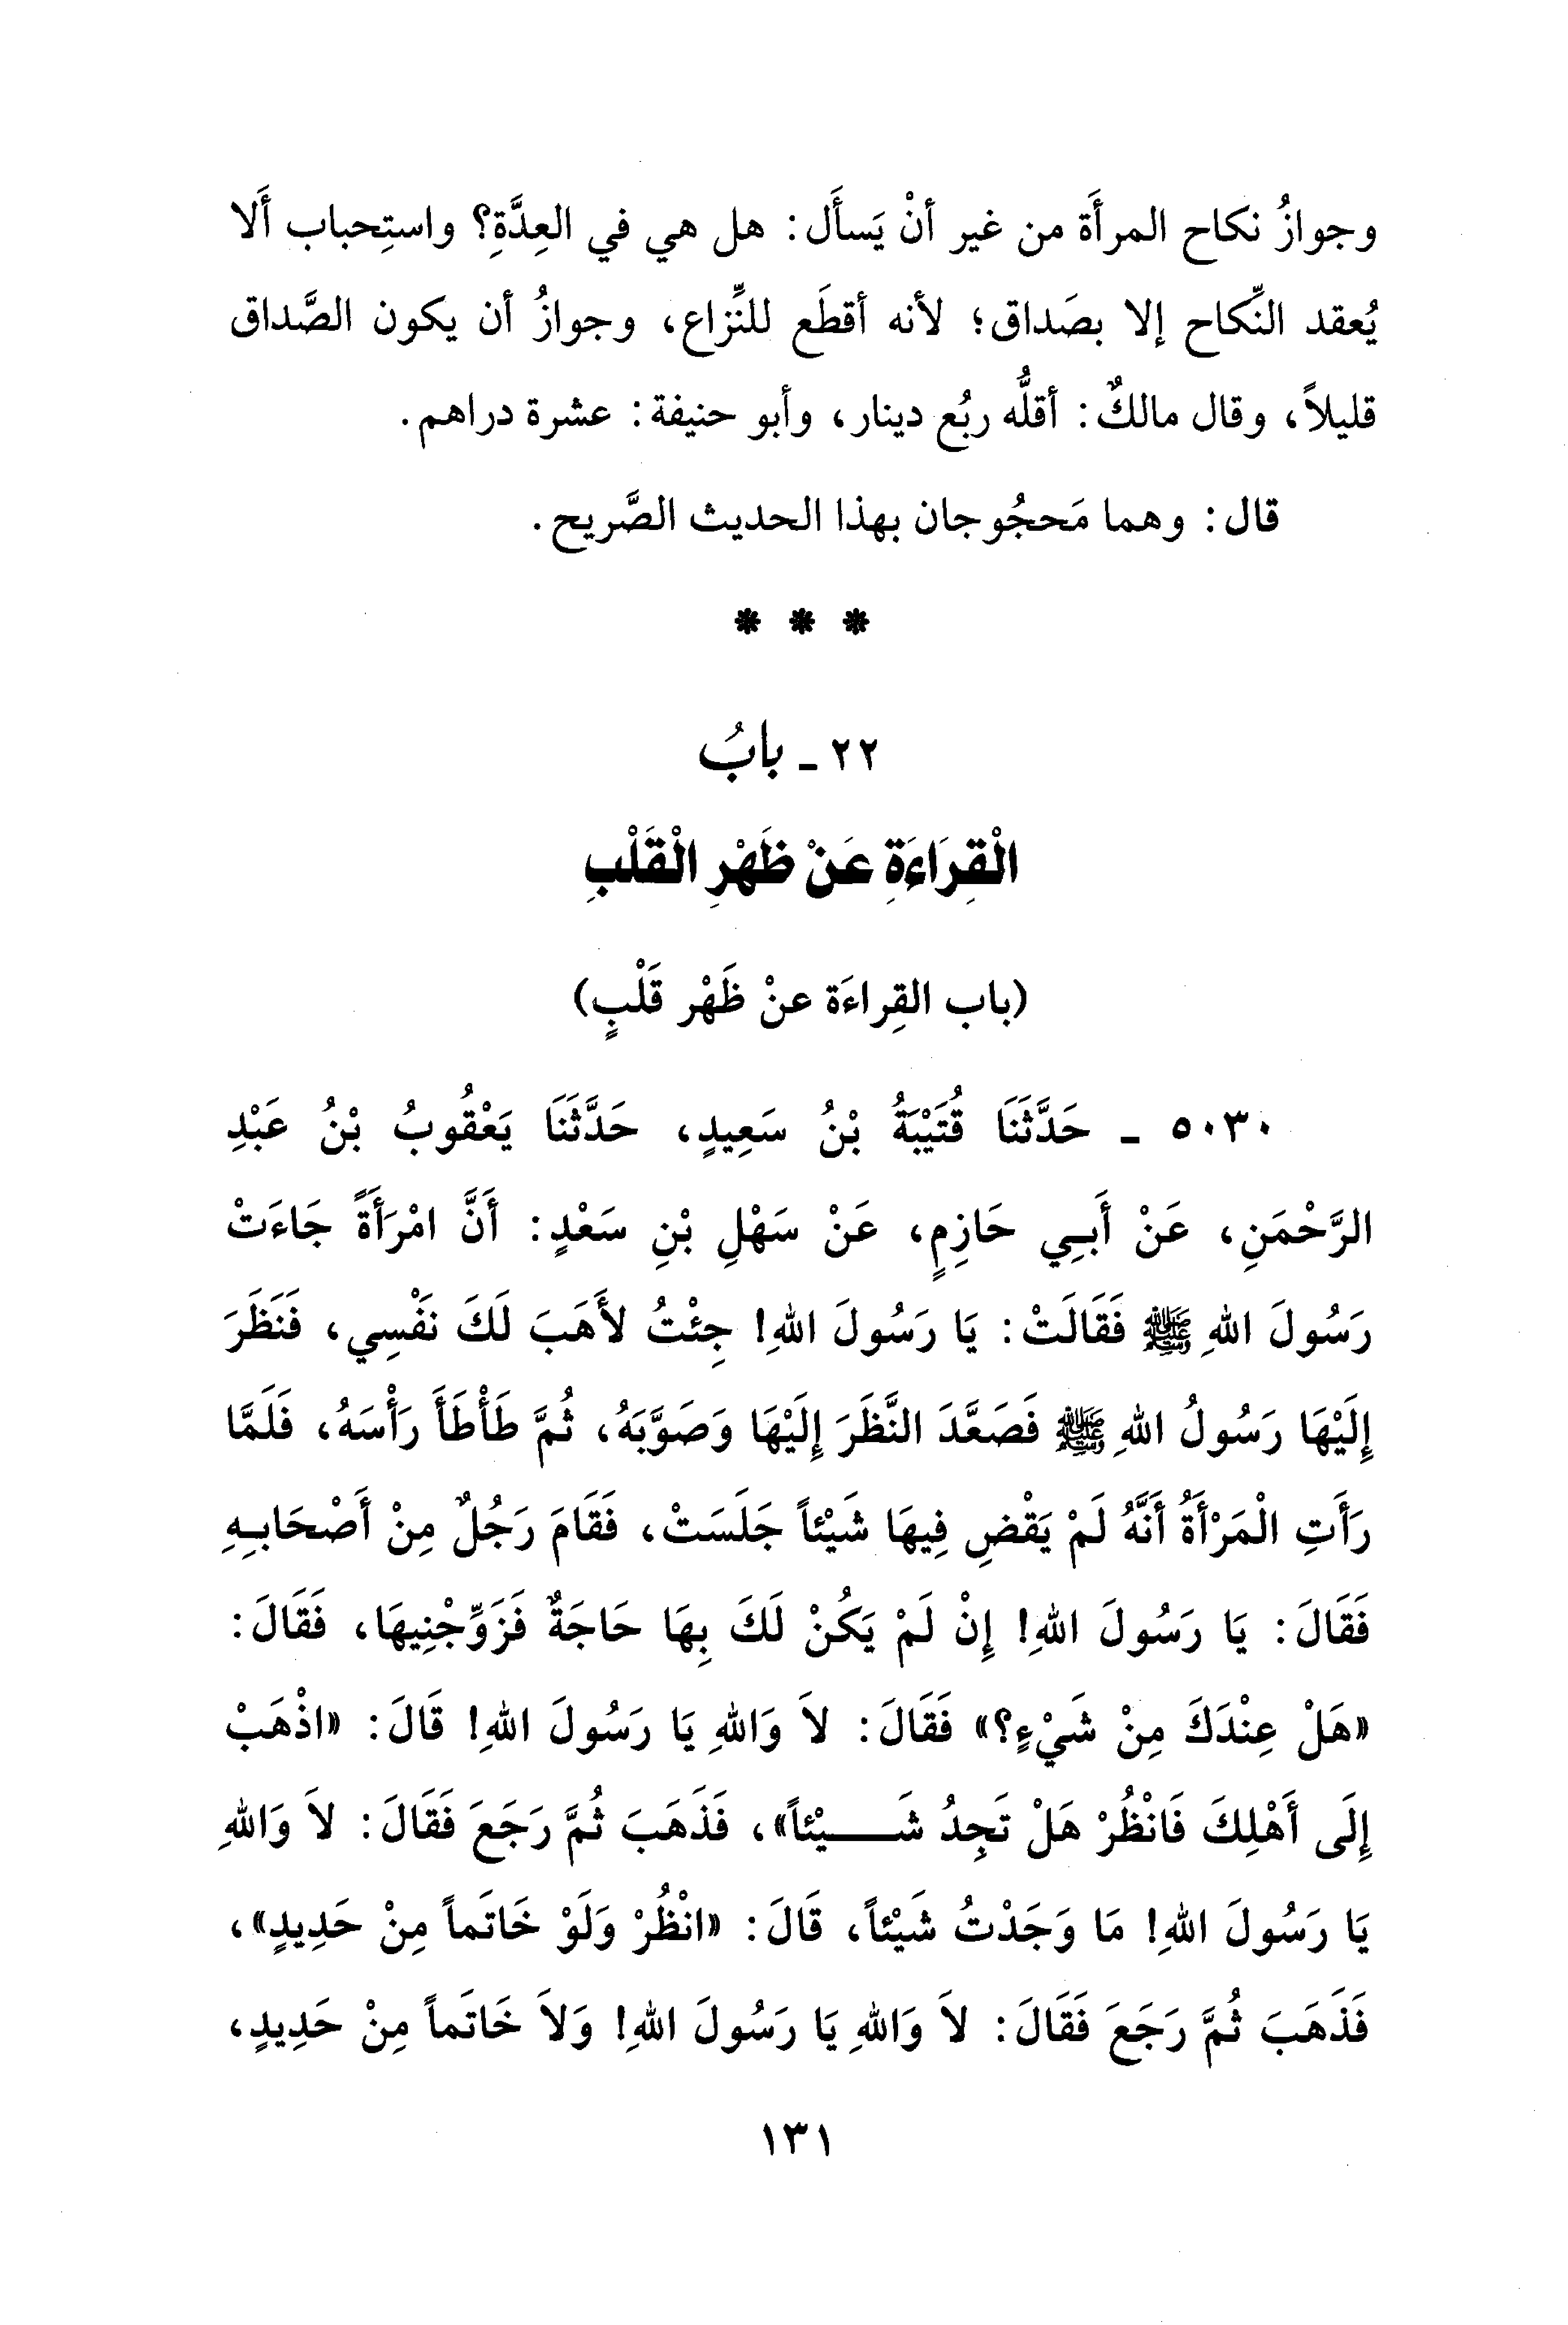 وجوازُ نكاح المرأَة من غير أنْ يَسأَل: هل هي في العِدَّةِ؟ واستِحباب ألَا
يُعقد النِّكاح إلا بصَداق؛ لأنه أقطَع للنِّزاع، وجوازُ أن يكون الصَّداق
قليلاً، وقال مالكٌ: أقلُّه ربُع دينار، وأبو حنيفة: عشرة دراهم.
قال: وهما مَحجُوجان بهذا الحديث الصَّريح.
* * *
٢٢ - بابُ
الْقِرَاءَةِ عَنْ ظَهْرِ الْقَلْبِ
(باب القِراءَة عنْ ظَهْر قَلْبٍ)
٥٠٣٠ - حَدَّثَنَا قُتَيْبَةُ بْنُ سَعِيدٍ، حَدَّثَنَا يَعْقُوبُ بْنُ عَبْدِ
الرَّحْمَنِ، عَنْ أَبِي حَازِمٍ، عَنْ سَهْلِ بْنِ سَعْدٍ: أَنَّ امْرَأَةً جَاءَتْ
رَسُولَ اللهِ ﷺ فَقَالَتْ: يَا رَسُولَ اللهِ! جِئْتُ لأَهَبَ لَكَ نَفْسِي، فَنَظَرَ
إِلَيْهَا رَسُولُ اللهِ ﷺ فَصَعَّدَ النَّظَرَ إِلَيْهَا وَصَوَّبَهُ، ثُمَّ طَأْطَأَ رَأْسَهُ، فَلَمَّا
رَأَتِ الْمَرْأَةُ أَنَّهُ لَمْ يَقْضِ فِيهَا شَيْئاً جَلَسَتْ، فَقَامَ رَجُلٌ مِنْ أَصْحَابِهِ
فَقَالَ: يَا رَسُولَ اللهِ! إِنْ لَمْ يَكُنْ لَكَ بِهَا حَاجَةٌ فَزَوِّجْنِيهَا، فَقَالَ:
«هَلْ عِنْدَكَ مِنْ شَيْءٍ؟» فَقَالَ: لاَ وَاللهِ يَا رَسُولَ اللهِ! قَالَ: «اذْهَبْ
إِلَى أَهْلِكَ فَانْظُرْ هَلْ تَجِدُ شَـــيْئاً»، فَذَهَبَ ثُمَّ رَجَعَ فَقَالَ: لاَ وَاللهِ
يَا رَسُولَ اللهِ! مَا وَجَدْتُ شَيْئاً، قَالَ: «انْظُرْ وَلَوْ خَاتَماً مِنْ حَدِيدٍ»،
فَذَهَبَ ثُمَّ رَجَعَ فَقَالَ: لاَ وَاللهِ يَا رَسُولَ اللهِ! وَلاَ خَاتَماً مِنْ حَدِيدٍ،
١٣١